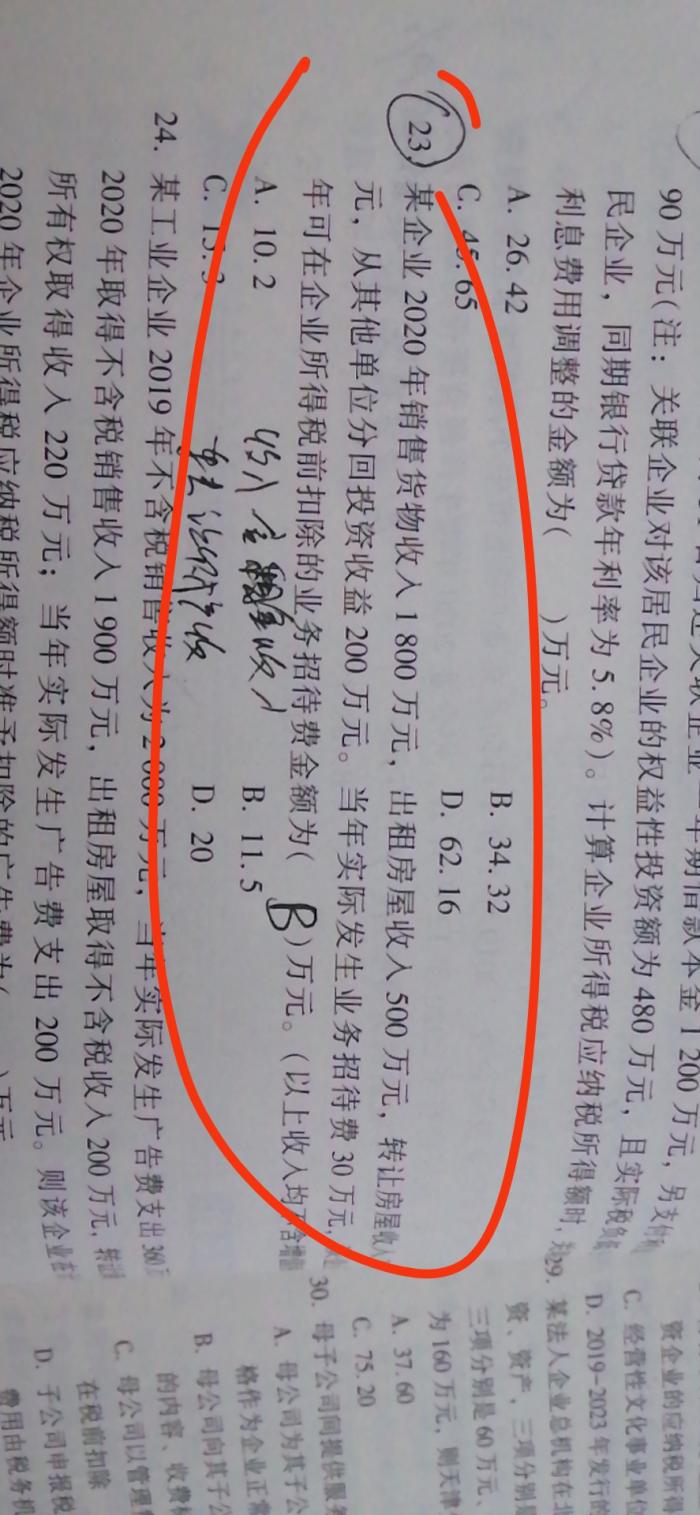 90 万元(注：关联企业对该居民企业的权益性投资额为 480 万元，且实际税负
民企业，同期银行贷款年利率为 5.8%)。计算企业所得税应纳税所得额时，
利息费用调整的金额为(　　)万元。
A. 26.42　　B. 34.32
C. 45.65　　D. 62.16
23. 某企业 2020 年销售货物收入 1 800 万元，出租房屋收入 500 万元，转让房屋收入
元，从其他单位分回投资收益 200 万元。当年实际发生业务招待费 30 万元，
年可在企业所得税前扣除的业务招待费金额为( B )万元。(以上收入均不含增值
A. 10.2　　B. 11.5
C. 15.5　　D. 20
24. 某工业企业 2019 年不含税销售收入为 2 000 万元，当年实际发生广告费支出 360 万
2020 年取得不含税销售收入 1 900 万元，出租房屋取得不含税收入 200 万元，转让
所有权取得收入 220 万元；当年实际发生广告费支出 200 万元。则该企业在
2020 年企业所得税应纳税所得额时准予扣除的广告费为(　　)万元
资企业的应纳税所得
C. 经营性文化事业单位
D. 2019-2023 年发行的
29. 某法人企业总机构在北
资、资产，三项分别是
三项分别是 60 万元、
为 160 万元，则天津
A. 37.60
C. 75.20
30. 母子公司间提供服务
A. 母公司为其子公
格作为企业正常
B. 母公司向其子公
的内容、收费标
C. 母公司以管理费
在税前扣除
D. 子公司申报税
费用由税务机